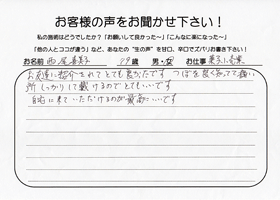 お客様の声をお聞かせ下さい！
私の施術はどうでしたか？「お願いして良かった〜」「こんなに楽になった〜」
「他の人とココが違う」など、あなたの“生の声”を甘口、辛口でズバリお書き下さい！
お名前 西尾 歳 男・女 お仕事
お友達に紹介されてとても良かったです つぼを良く知ってて痛い
所しっかりして戴けるのでとてもいいです
自宅に来ていただけるのが最高にいいです